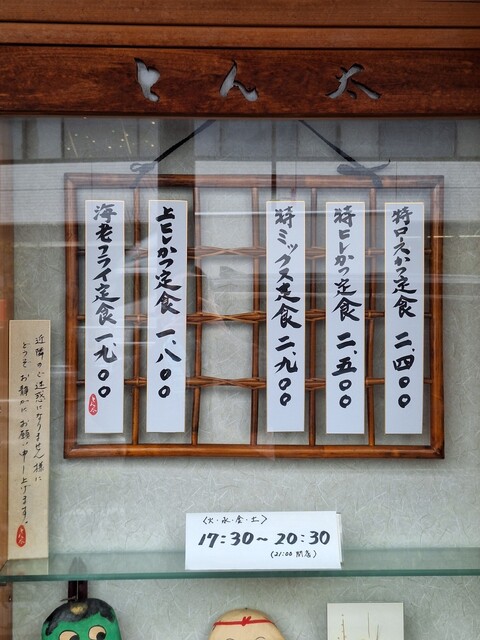 とん太
特ロースかつ定食 二、四〇〇
特ヒレかつ定食 二、五〇〇
特ミックス定食 二、九〇〇
上ヒレかつ定食 一、八〇〇
海老フライ定食 一、九〇〇
とん太
近隣のご迷惑になりません様に
どうぞお静かにお願い申し上げます。
とん太
〈火・水・金・土〉
17:30〜20:30
(21:00 閉店)